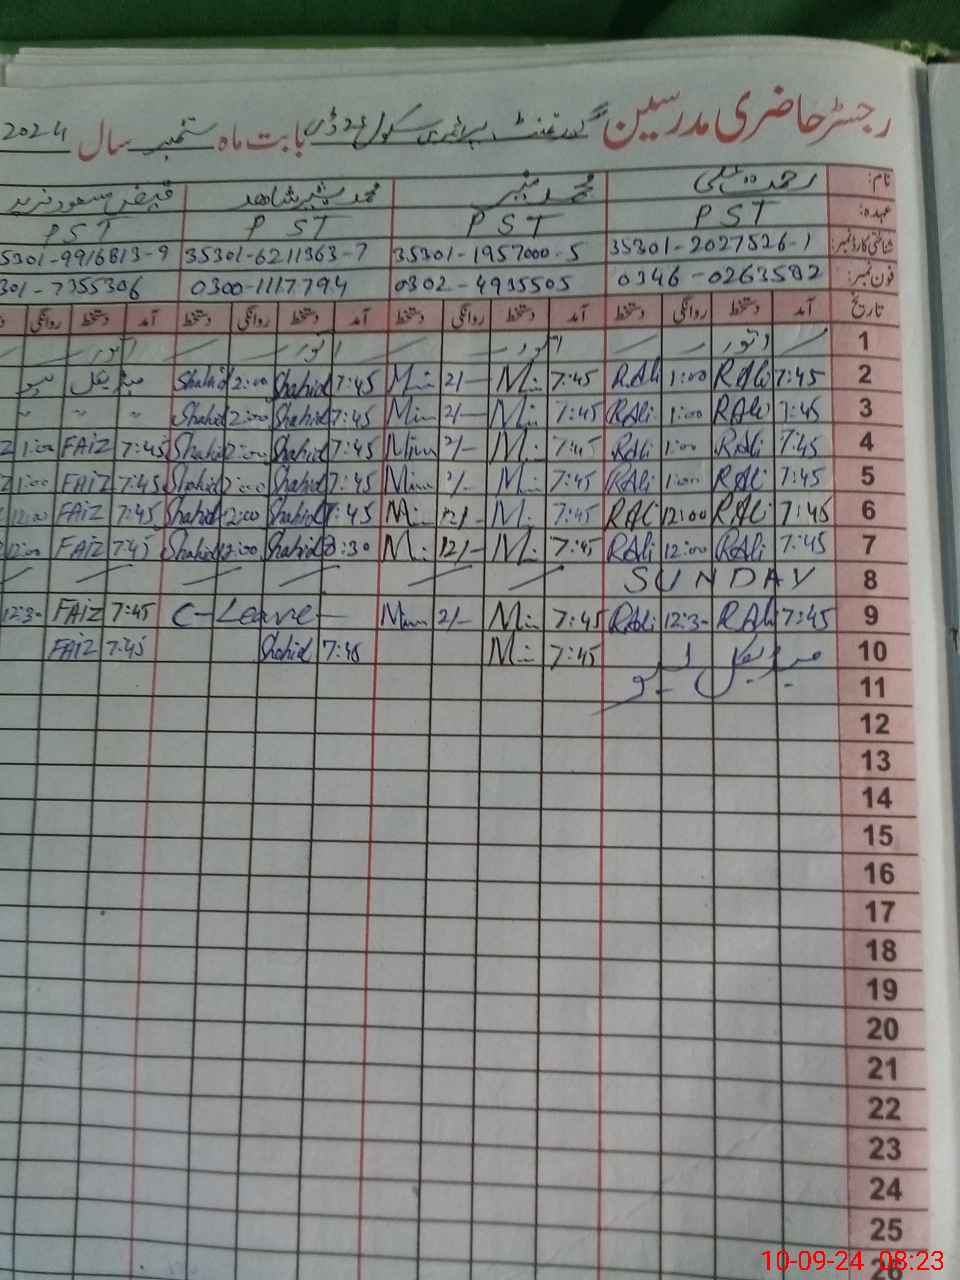 رجسٹر حاضری مدرسین گورنمنٹ پرائمری سکول بابت ماہ ستمبر سال 2024
نام: رحمت علی محمد منیر محمد بشیر شاہد فیض مسعود
عہدہ: PST PST PST PST
شناختی کارڈ نمبر: 35301-2027526-1 35301-1957000-5 35301-6211363-7 5301-9916813-9
فون نمبر: 0346-0263582 0302-4935505 0300-1117794 301-7355306
تاریخ آمد دستخط روانگی دستخط آمد دستخط روانگی دستخط آمد دستخط روانگی دستخط آمد دستخط روانگی
1 اتوار اتوار اتوار اتوار
2 7:45 RAli 1:00 RAli 7:45 M 2/- Min 7:45 Shahid 2:00 Shahid میڈیکل لیو
3 7:45 RAli 1:00 RAli 7:45 M 2/- Min 7:45 Shahid 2:00 Shahid " " "
4 7:45 RAli 1:00 RAli 7:45 M 2/- Min 7:45 Shahid 2:00 Shahid 7:45 FAIZ 1:00 Z
5 7:45 RAli 1:00 RAli 7:45 M 2/- Min 7:45 Shahid 2:00 Shahid 7:45 FAIZ 1:00 Z
6 7:45 RAli 12:00 RAli 7:45 M 12/- M 7:45 Shahid 12:00 Shahid 7:45 FAIZ 12:00
7 7:45 RAli 12:00 RAli 7:45 M 12/- M 8:30 Shahid 12:00 Shahid 7:45 FAIZ 12:00
8 SUNDAY
9 7:45 RAli 12:3- RAli 7:45 M 2/- Min C-Leave 7:45 FAIZ 12:3-
10 میڈیکل لیو 7:45 M 7:48 Shahid 7:45 FAIZ
11
12
13
14
15
16
17
18
19
20
21
22
23
24
25
26
10-09-24 08:23